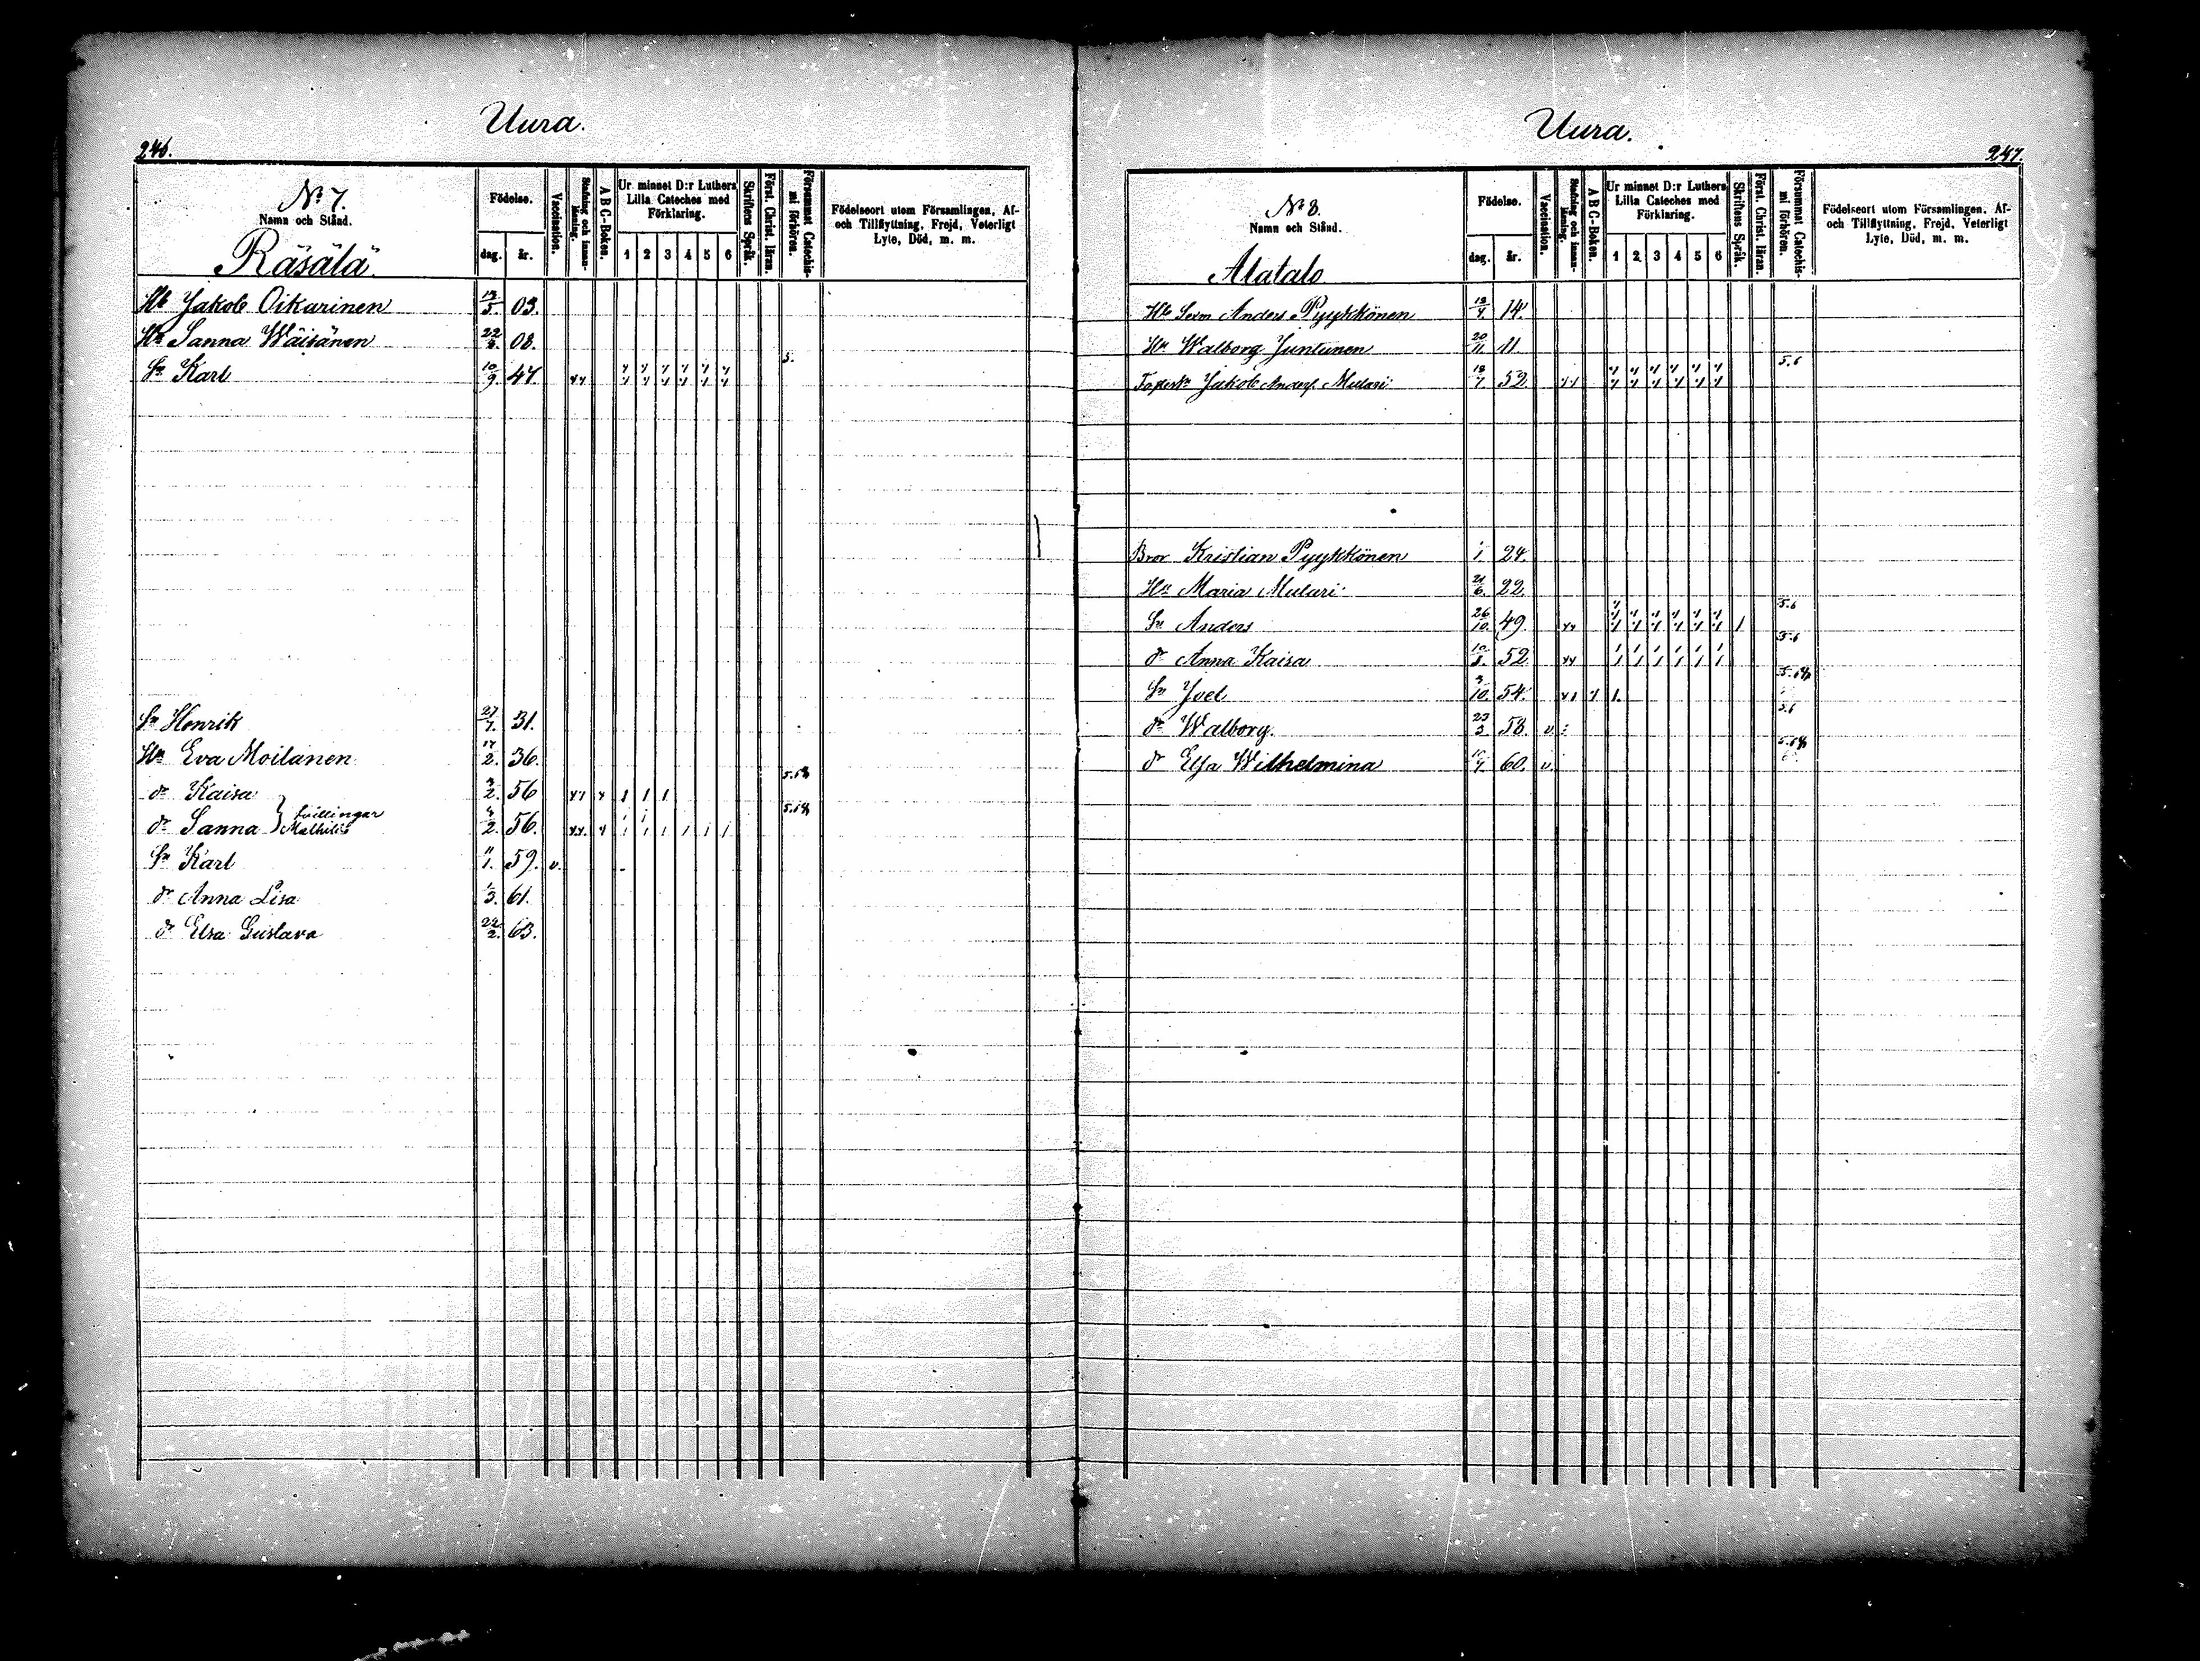 Uura.
246.
No 7.
Namn och Stånd.
Räsälä
Födelse.
dag. år.
Vaccination.
Stafning och innanläsning.
A B C-Boken.
Ur minnet D:r Luthers Lilla Cateches med Förklaring.
1 2 3 4 5 6
Skriftens Språk.
Först. Christ. läran.
Försummat Catechismi förhören.
Födelseort utom Församlingen, Af- och Tillflyttning, Frejd, Veterligt Lyte, Död, m. m.
Hb Jakob Oikarinen 03.
Hu Sanna Wäisänen 08.
Sn Karl 10/9. 47. 5.
Sn Henrik 27/7. 31.
Hu Eva Moilanen 17/2. 36.
dr Kaisa 3/2. 56
dr Sanna Mathilda } tvillingar 3/2. 56.
Sn Karl 11/1. 59. v.
dr Anna Lisa 1/3. 61.
dr Elsa Gustava 22/2. 63.
Uura.
247.
No 8.
Namn och Stånd.
Alatalo
Födelse.
dag. år.
Vaccination.
Stafning och innanläsning.
A B C-Boken.
Ur minnet D:r Luthers Lilla Cateches med Förklaring.
1 2 3 4 5 6
Skriftens Språk.
Först. Christ. läran.
Försummat Catechismi förhören.
Födelseort utom Församlingen, Af- och Tillflyttning, Frejd, Veterligt Lyte, Död, m. m.
Hb Sexm Anders Pyykkönen 14.
Hu Walborg Juntunen 20/11. 11.
Jakob Anderss. Mulari 52. 5.6
Bror Kristian Pyykkönen 24.
Hu Maria Mulari 21/6. 22.
Sn Anders 26/10. 49. 5.6
dr Anna Kaisa 52. 5.6
Sn Joel 54.
dr Walborg. 23/3. 58. v. 5.6
dr Elsa Wilhelmina 60. v.